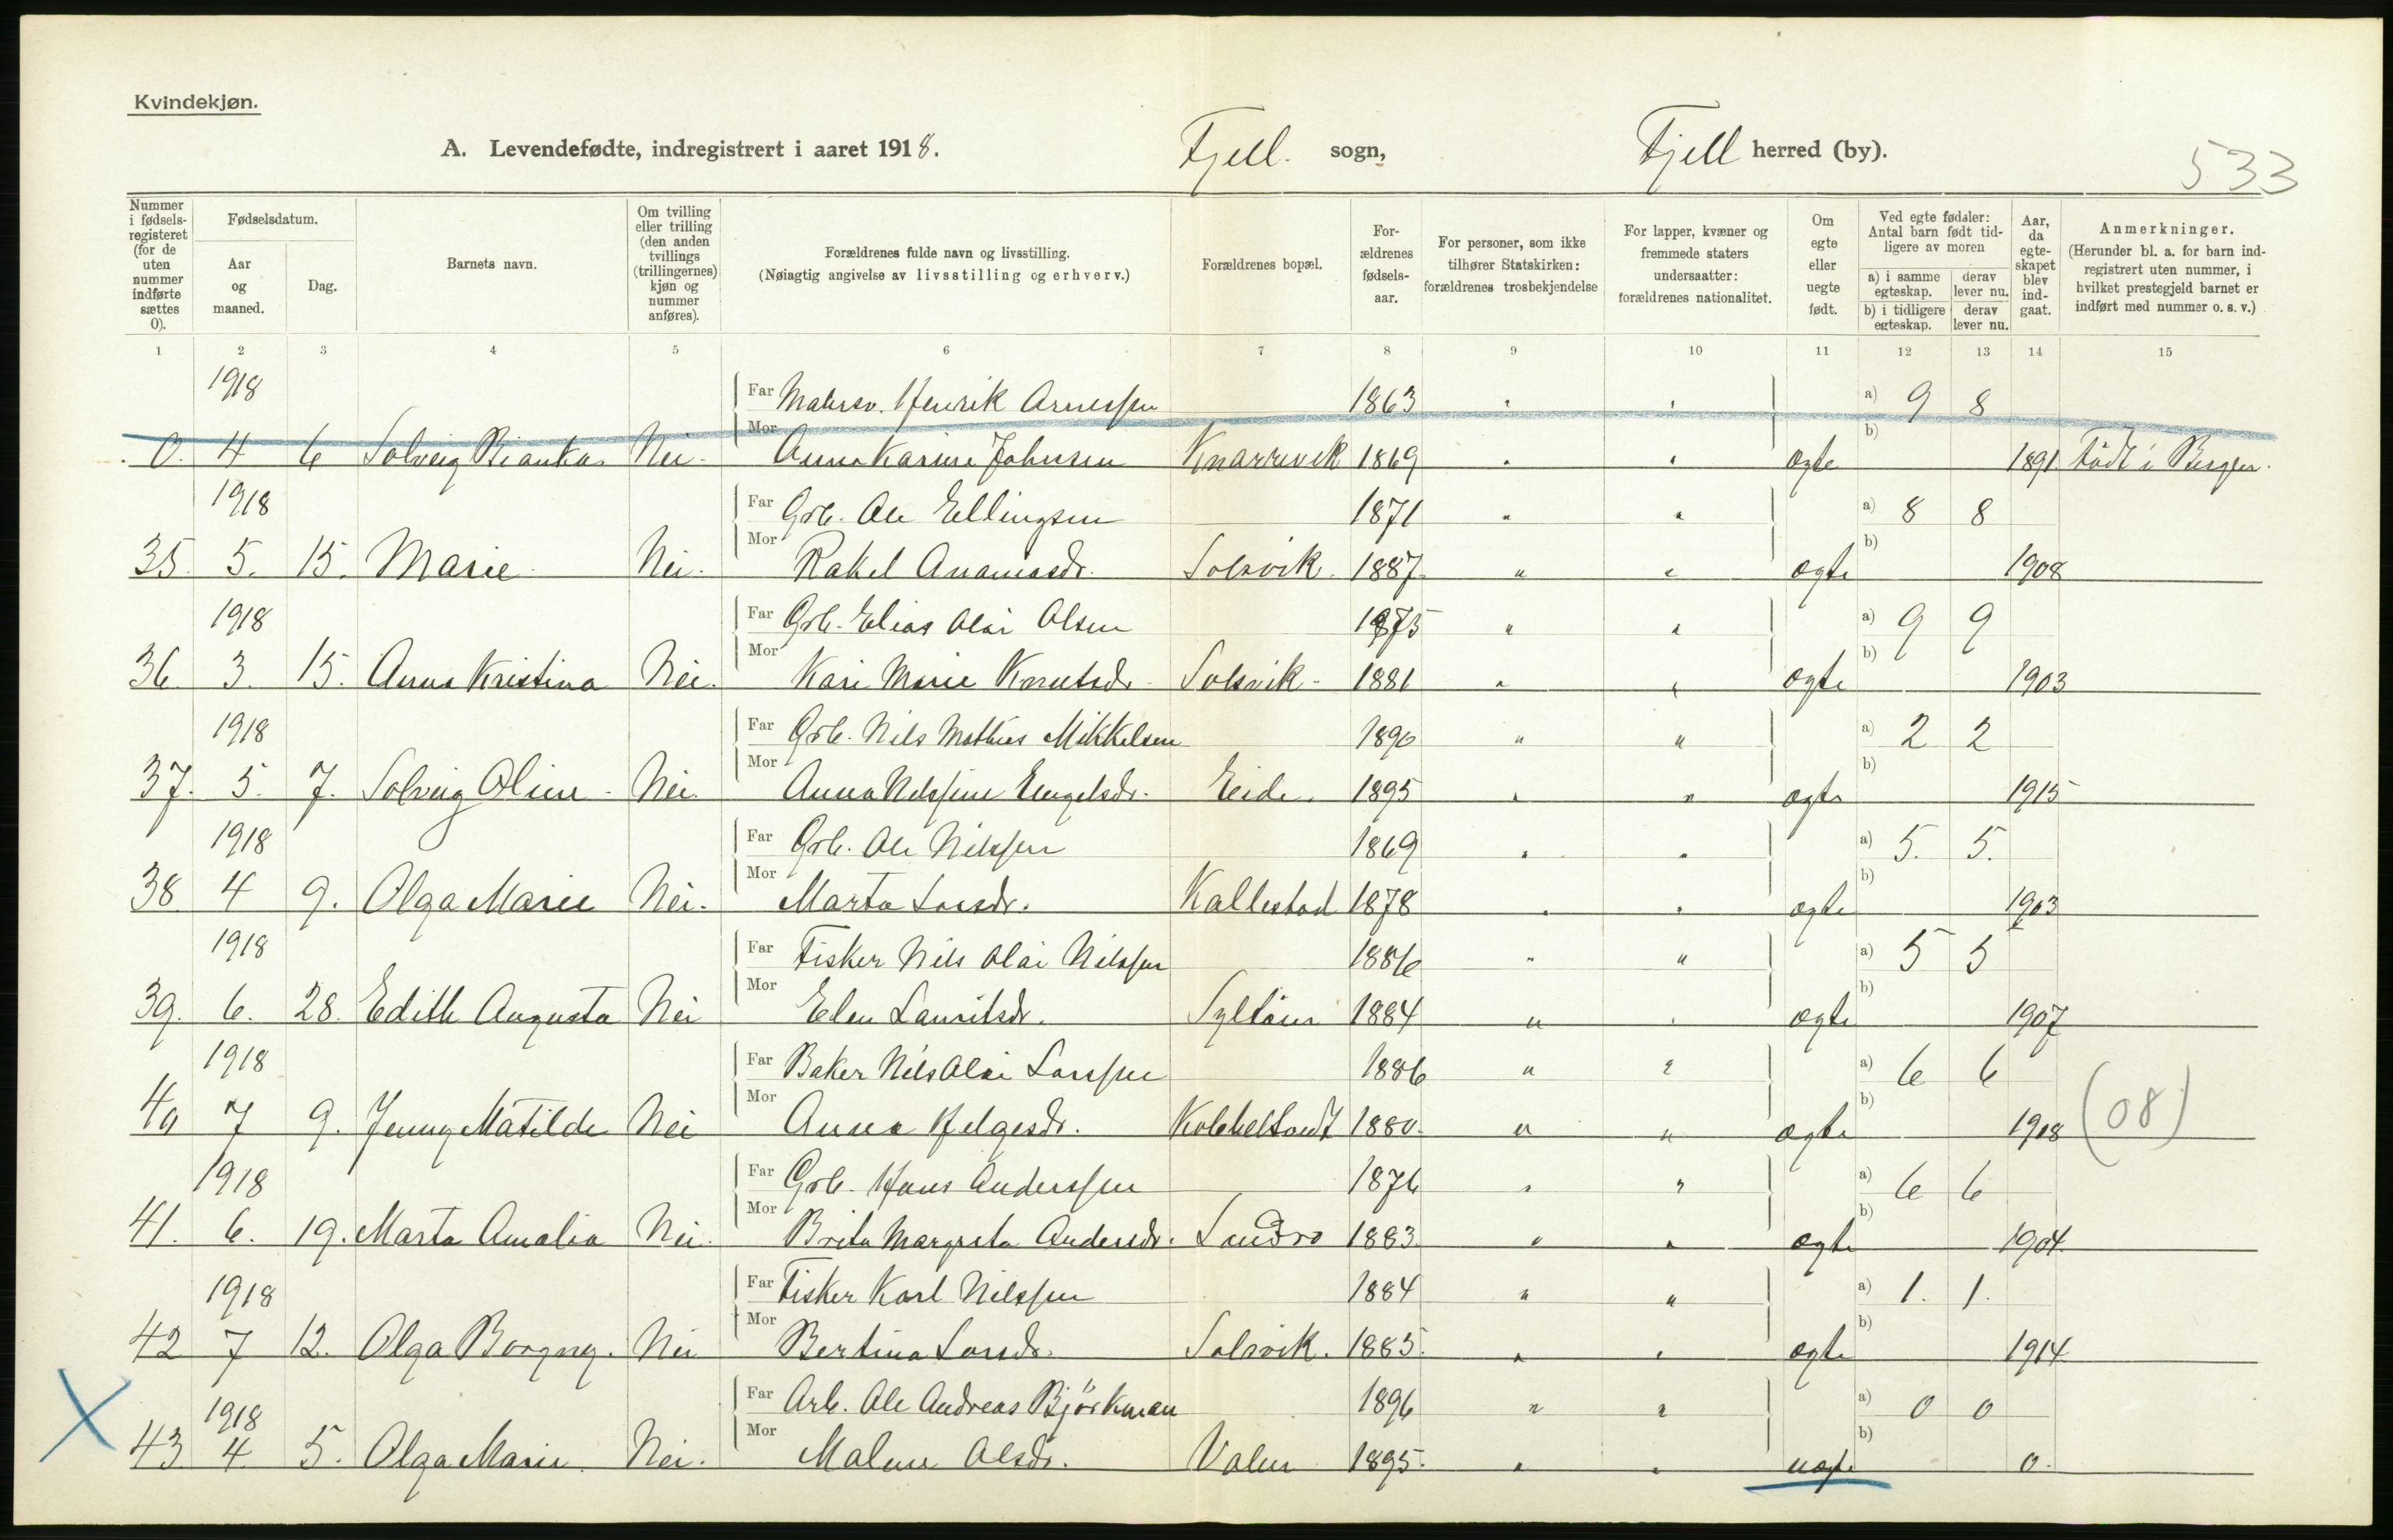 Kvindekjøn.
A. Levendefødte, indregistrert i aaret 1918. Fjell. sogn, Fjell herred (by).
533
Nummer i fødsels-registeret (for de uten nummer indførte sættes 0).
Fødselsdatum.
Aar og maaned.
Dag.
Barnets navn.
Om tvilling eller trilling (den anden tvillings (trillingernes) kjøn og nummer anføres).
Forældrenes fulde navn og livsstilling.
(Nøiagtig angivelse av livsstilling og erhverv.)
Forældrenes bopæl.
For-ældrenes fødsels-aar.
For personer, som ikke tilhører Statskirken: forældrenes trosbekjendelse
For lapper, kvæner og fremmede staters undersaatter: forældrenes nationalitet.
Om egte eller uegte født.
Ved egte fødsler: Antal barn født tid-ligere av moren
a) i samme egteskap. derav lever nu.
b) i tidligere egteskap. derav lever nu.
Aar, da egte-skapet blev ind-gaat.
Anmerkninger.
(Herunder bl. a. for barn ind-registrert uten nummer, i hvilket prestegjeld barnet er indført med nummer o. s. v.)
1 2 3 4 5 6 7 8 9 10 11 12 13 14 15
1918 Far Henrik Arnessen 1863 " " a) 9 8
0. 4 6 Solveig Bianka Nei. Mor Anna Karine Johnsen Knarrevik 1869 " " ægte b) 1891 Född i Bergen.
1918 Far Grb. Ole Ellingsen 1871 " " a) 8 8
35. 5. 15. Marie Nei. Mor Rakel Ananiasdr. Solsvik. 1887. " " ægte b) 1908
1918 Far Grb. Elias Olai Olsen 1875 " " a) 9 9
36 3. 15. Anna Kristina Nei. Mor Kari Marie Knutsdr. Solsvik 1881 " " ægte b) 1903
1918 Far Grb. Nils Mathias Mikkelsen 1890 " " a) 2 2
37. 5. 7. Solveig Oline Nei. Mor Anna Nilssine Engelsdr. Eide. 1895 " " ægte b) 1915
1918 Far Grb. Ole Nilssen 1869 " " a) 5. 5.
38 4 9. Olga Marie Nei. Mor Marta Larsdr. Kallestad 1878 " " ægte b) 1903
1918 Far Fisker Nils Olai Nilssen 1886 " " a) 5 5
39. 6. 28. Edith Augusta Nei Mor Elen Lauritsdr. Syltöen 1884 " " ægte b) 1907
1918 Far Baker Nils Olai Larssen 1886 " " a) 6 6
40 7 9. Jenny Matilde Nei Mor Anna Helgesdr. Kolbeltveit 1880. " " ægte b) 1908 (08)
1918 Far Grb. Hans Anderssen 1876 " " a) 6 6
41. 6. 19. Marta Amalia Nei. Mor Brita Margreta Andersdr. Landro 1883. " " ægte b) 1904.
1918 Far Fisker Karl Nilssen 1884 " " a) 1. 1.
42 7 12. Olga Borgny. Nei Mor Bertina Larsdr. Solsvik. 1885. " " ægte b) 1914
1918 Far Arb. Ole Andreas Björkman 1896 " " a) 0 0
X 43 4. 5. Olga Marie. Nei. Mor Malene Olsdr. Valen 1895. " " uægte b) 0.